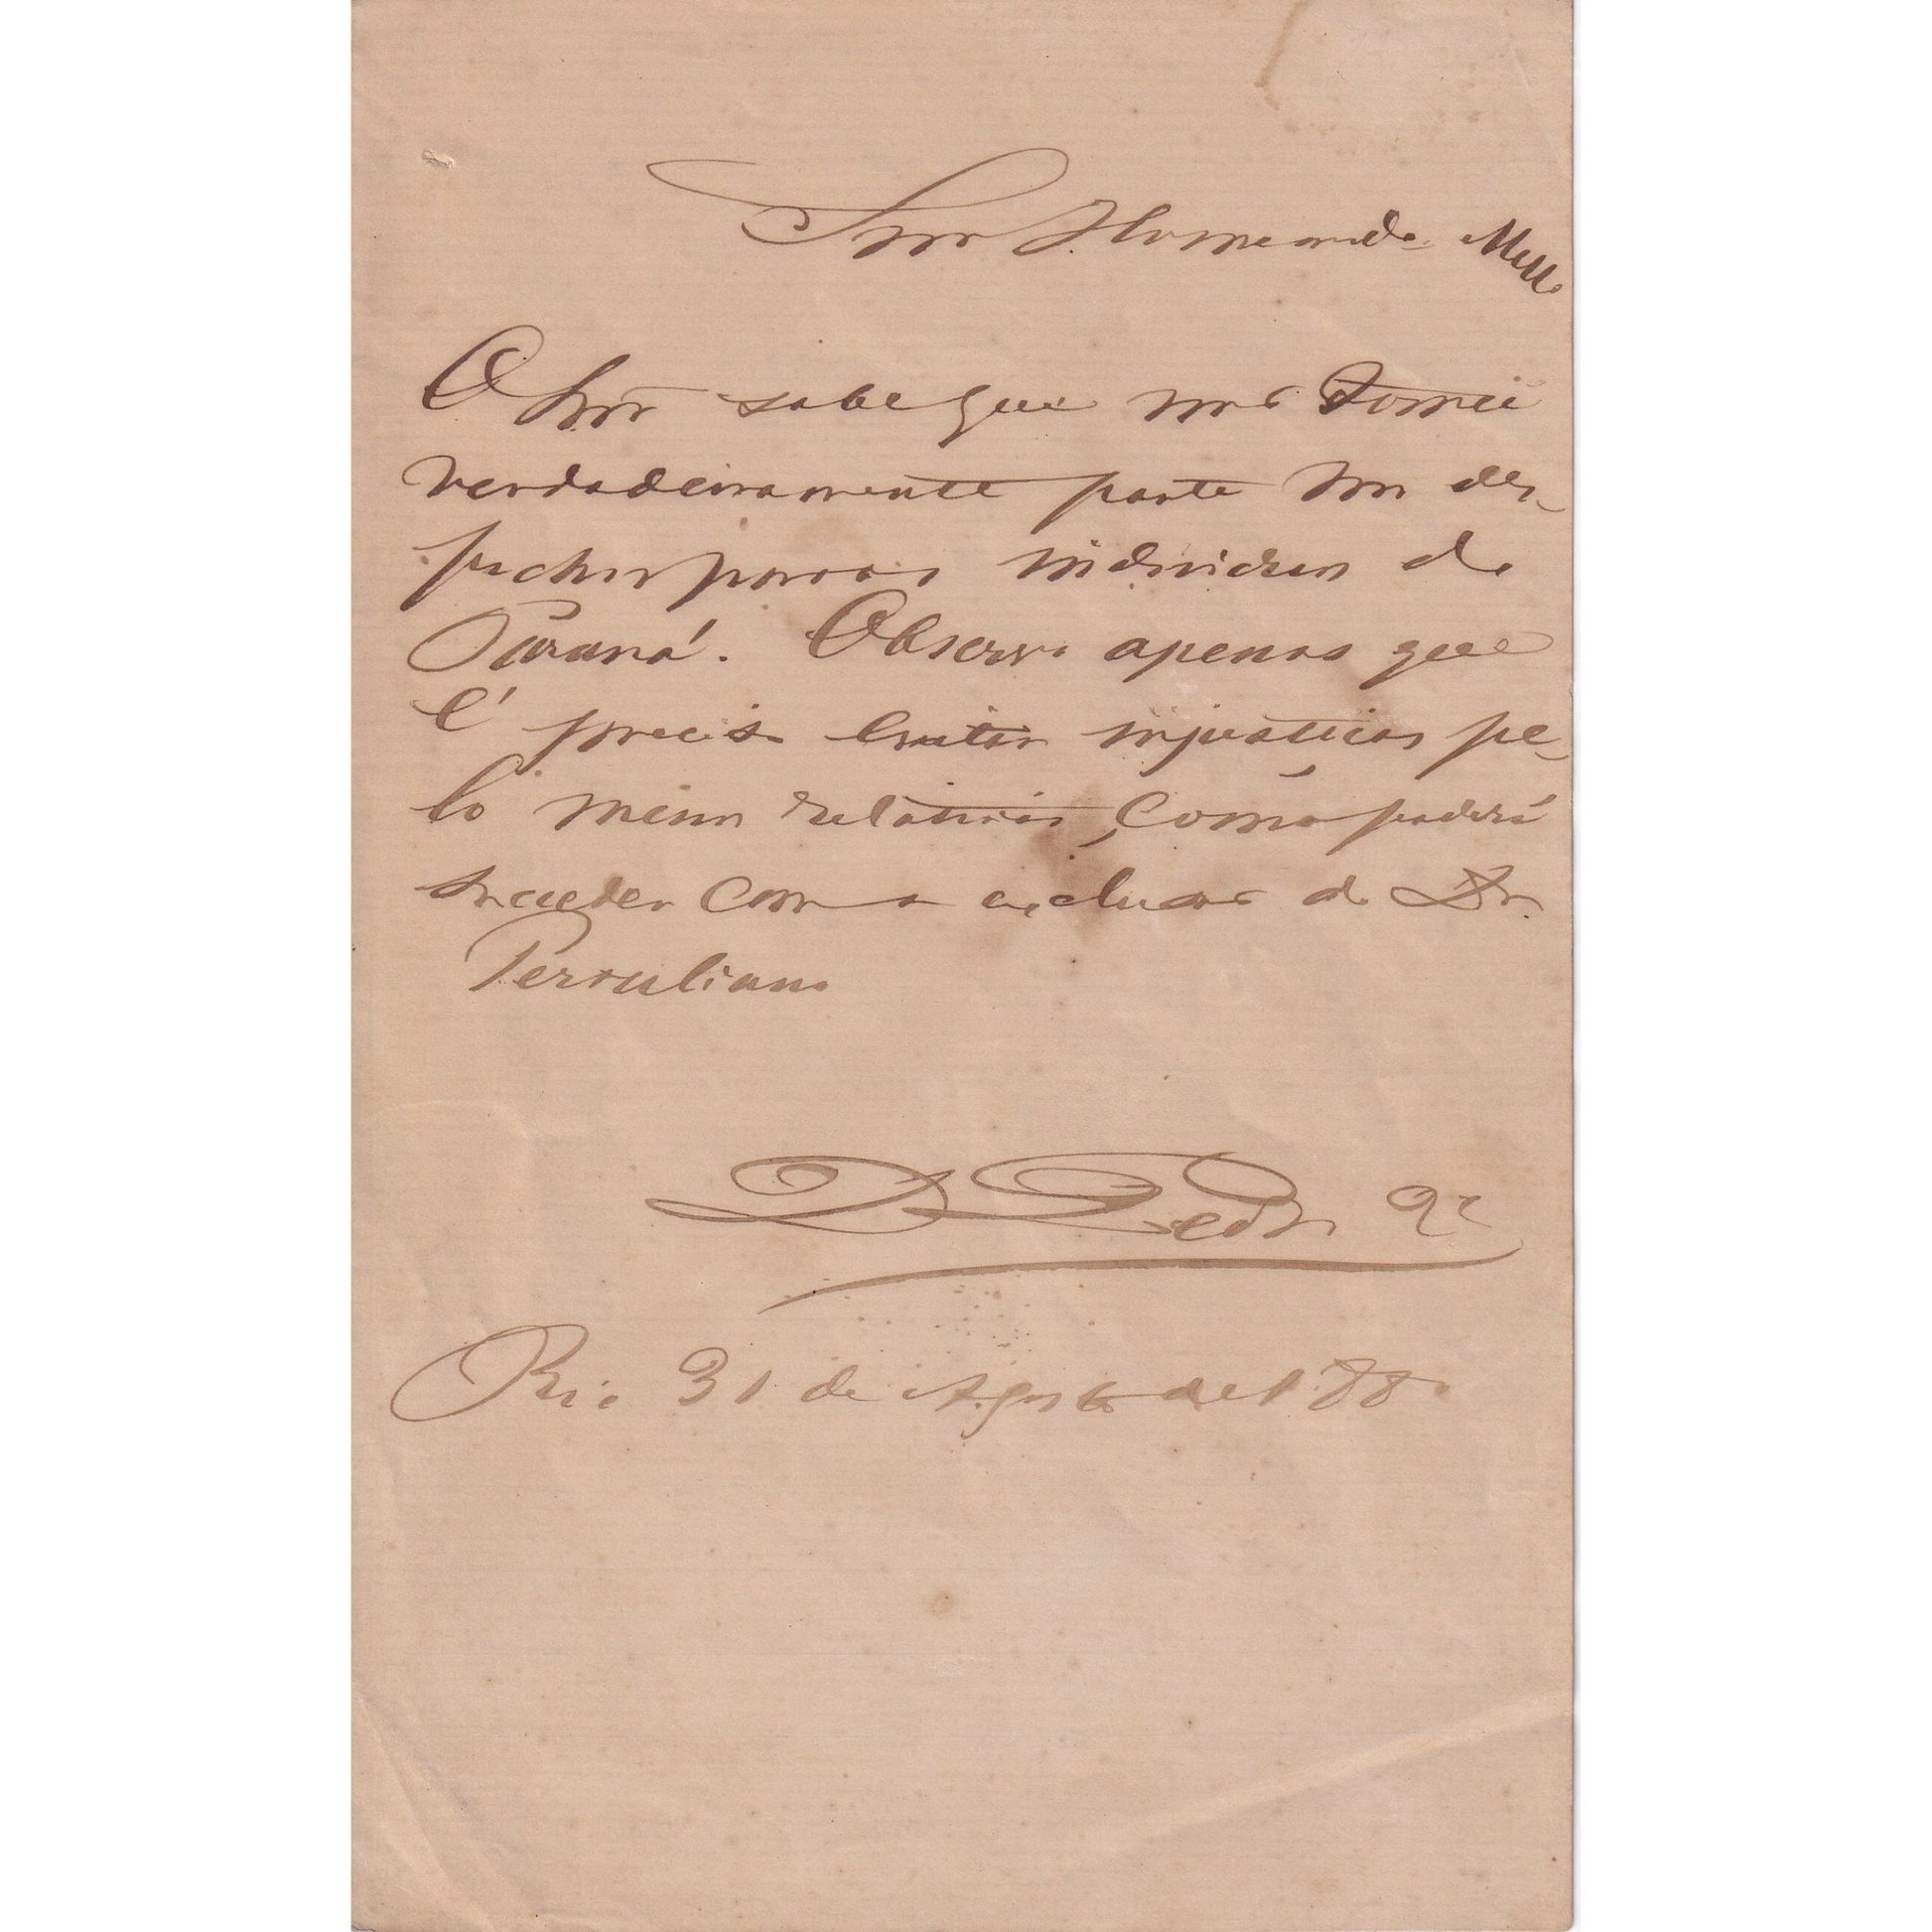 Snr Homem de Mello
O Snr sabe que não tomei
verdadeiramente parte nos des-
pachos para os individuos do
Paraná. Observo apenas que
é preciso evitar injustiças pe-
lo menos relativas, como poderá
succeder com a exclusão do Dr.
D. Pedro 2º
Rio 31 de Agosto de 1880